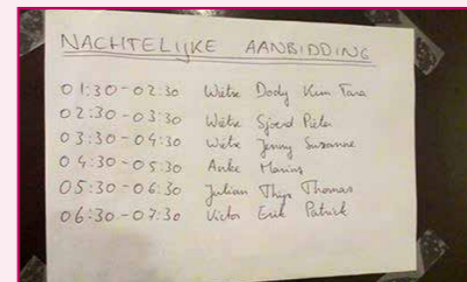 NACHTELIJKE AANBIDDING
01:30-02:30 Wietse Dody Kim Tara
02:30-03:30 Wietse Sjoerd Pieter
03:30-04:30 Wietse Jenny Suzanne
04:30-05:30 Anke Marius
05:30-06:30 Julian Thijs Thomas
06:30-07:30 Victor Erik Patrick